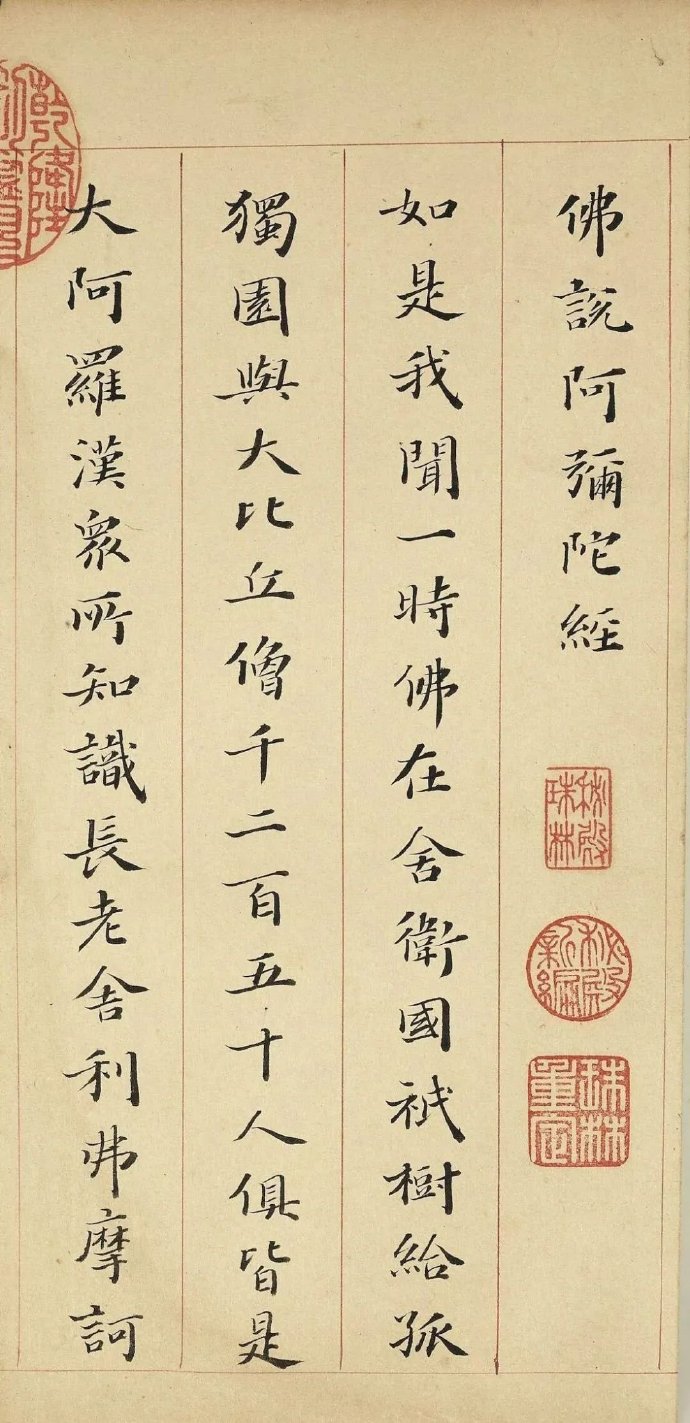 佛說阿彌陀經
如是我聞一時佛在舍衛國祇樹給孤
獨園與大比丘僧千二百五十人俱皆是
大阿羅漢衆所知識長老舍利弗摩訶
秘殿珠林
秘殿新編
珠林重定
乾隆